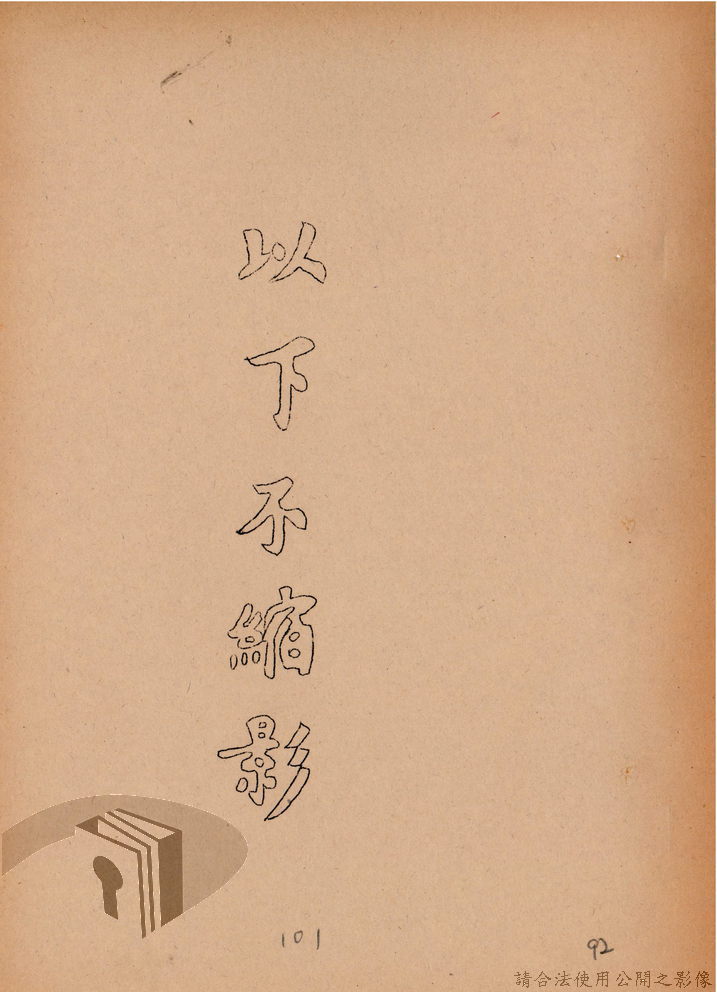 以下不縮影
101
92
請合法使用公開之影像